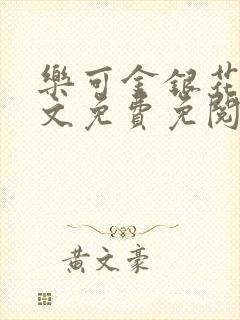 樂可金銀花
文免費免閱
黃文豪